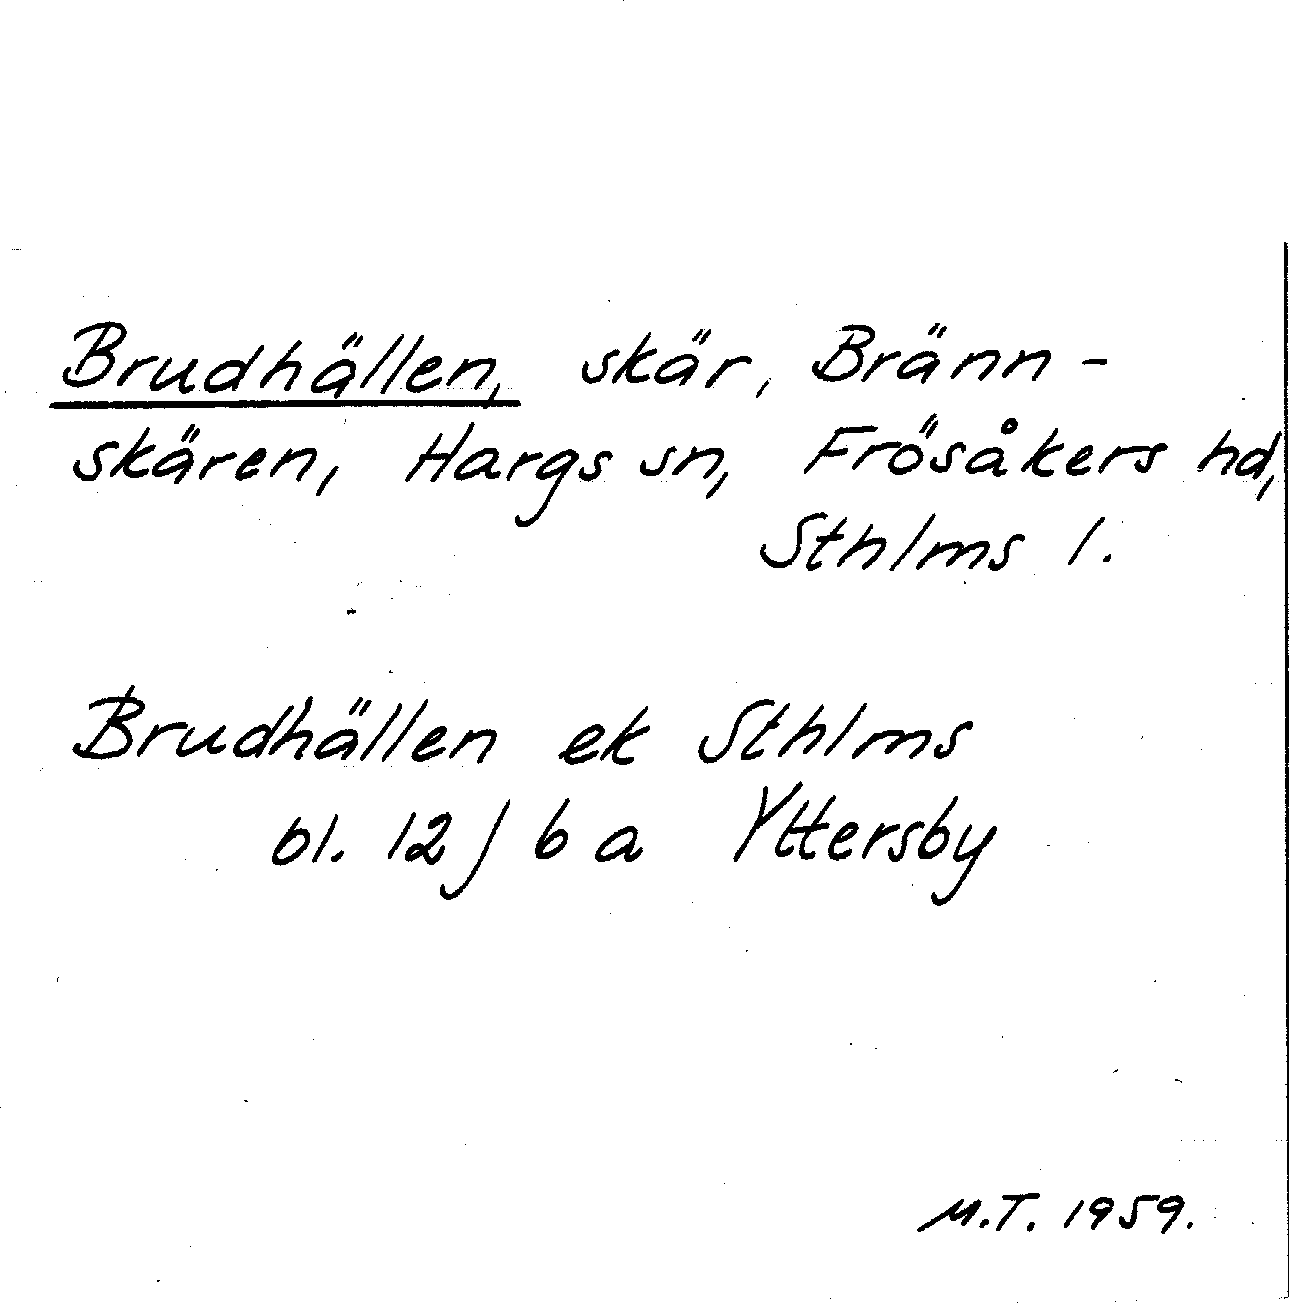 Brudhällen, skär, Bränn-
skären, Hargs sn, Frösåkers hd,
Sthlms l.
Brudhällen ek Sthlms
bl. 12 j b a Yttersby
M.T. 1959.